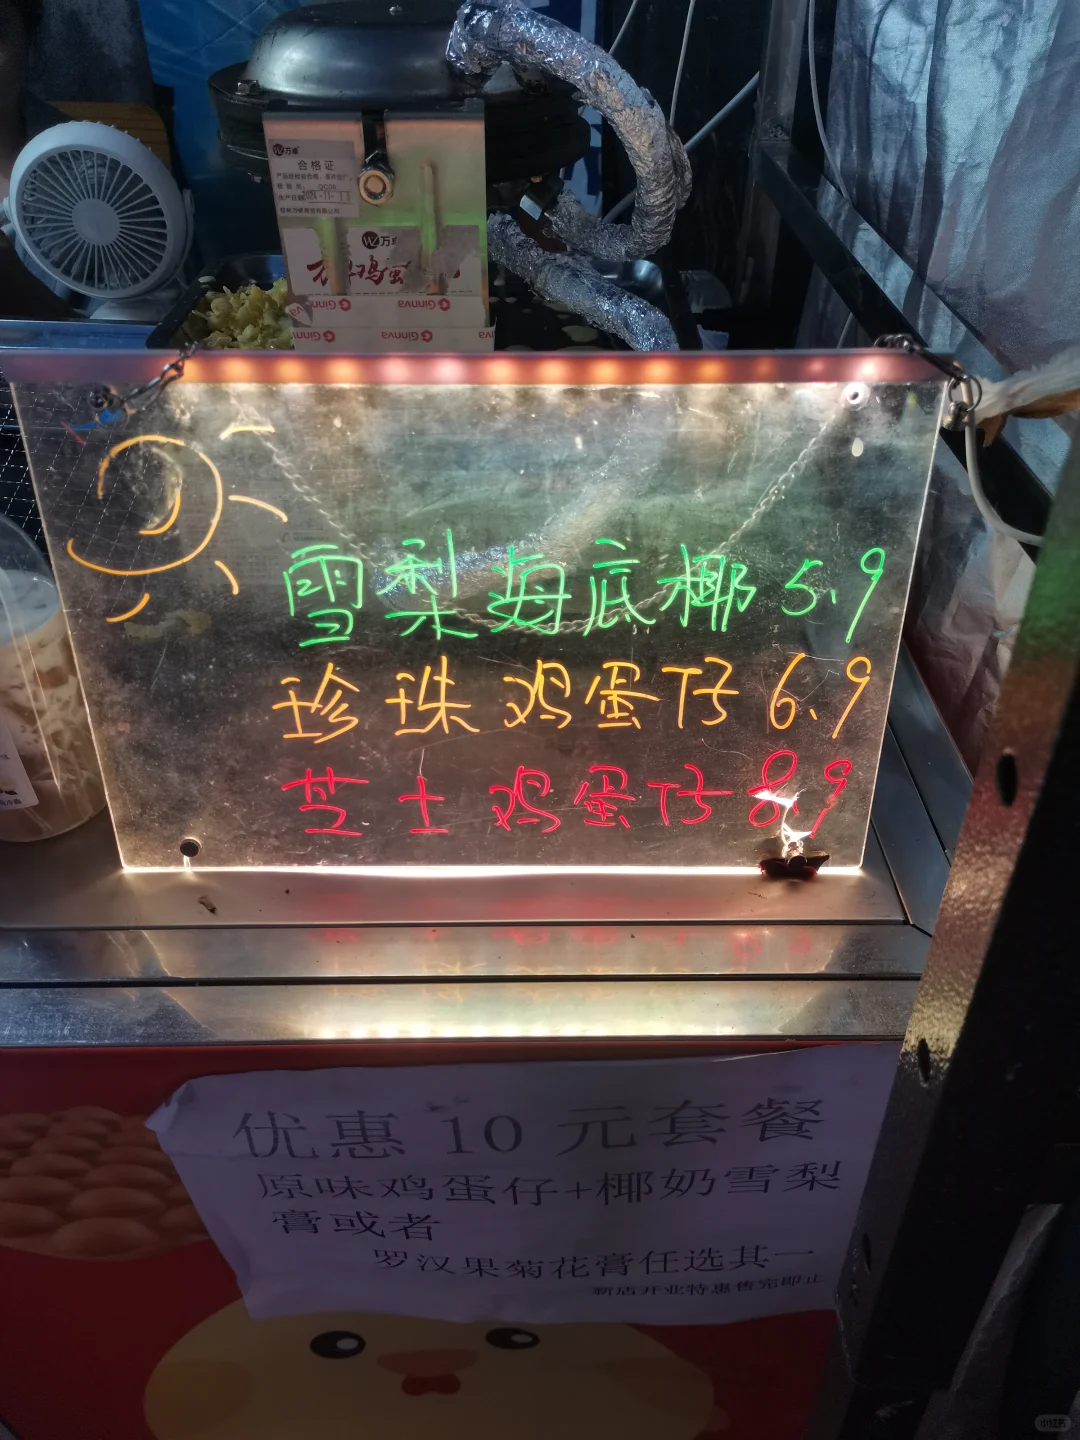 万卓
合格证
QC06
万卓
Ginnva Ginnva Ginnva
Ginnva Ginnva Ginnva
雪梨海底椰 5.9
珍珠鸡蛋仔 6.9
芝士鸡蛋仔 8.9
优惠10元套餐
原味鸡蛋仔+椰奶雪梨
膏或者
罗汉果菊花膏任选其一
新店开业特惠售完即止
小红书